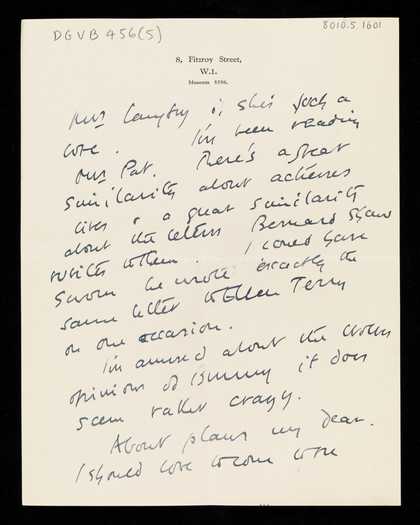 DGVB 456(5)
8010.5.1601
8, Fitzroy Street,
W.1.
Museum
Mrs Langtry; she's such a
bore. I've been reading
Mrs Pat. There's a great
similarity about actresses
lives & a great similarity
about the letters Bernard Shaw
writes to them. I could have
sworn he wrote exactly the
same letter to Ellen Terry
on one occasion.
I'm amused about the
opinions of Bunny it does
seem rather crazy.
About plans my dear.
I should love to come